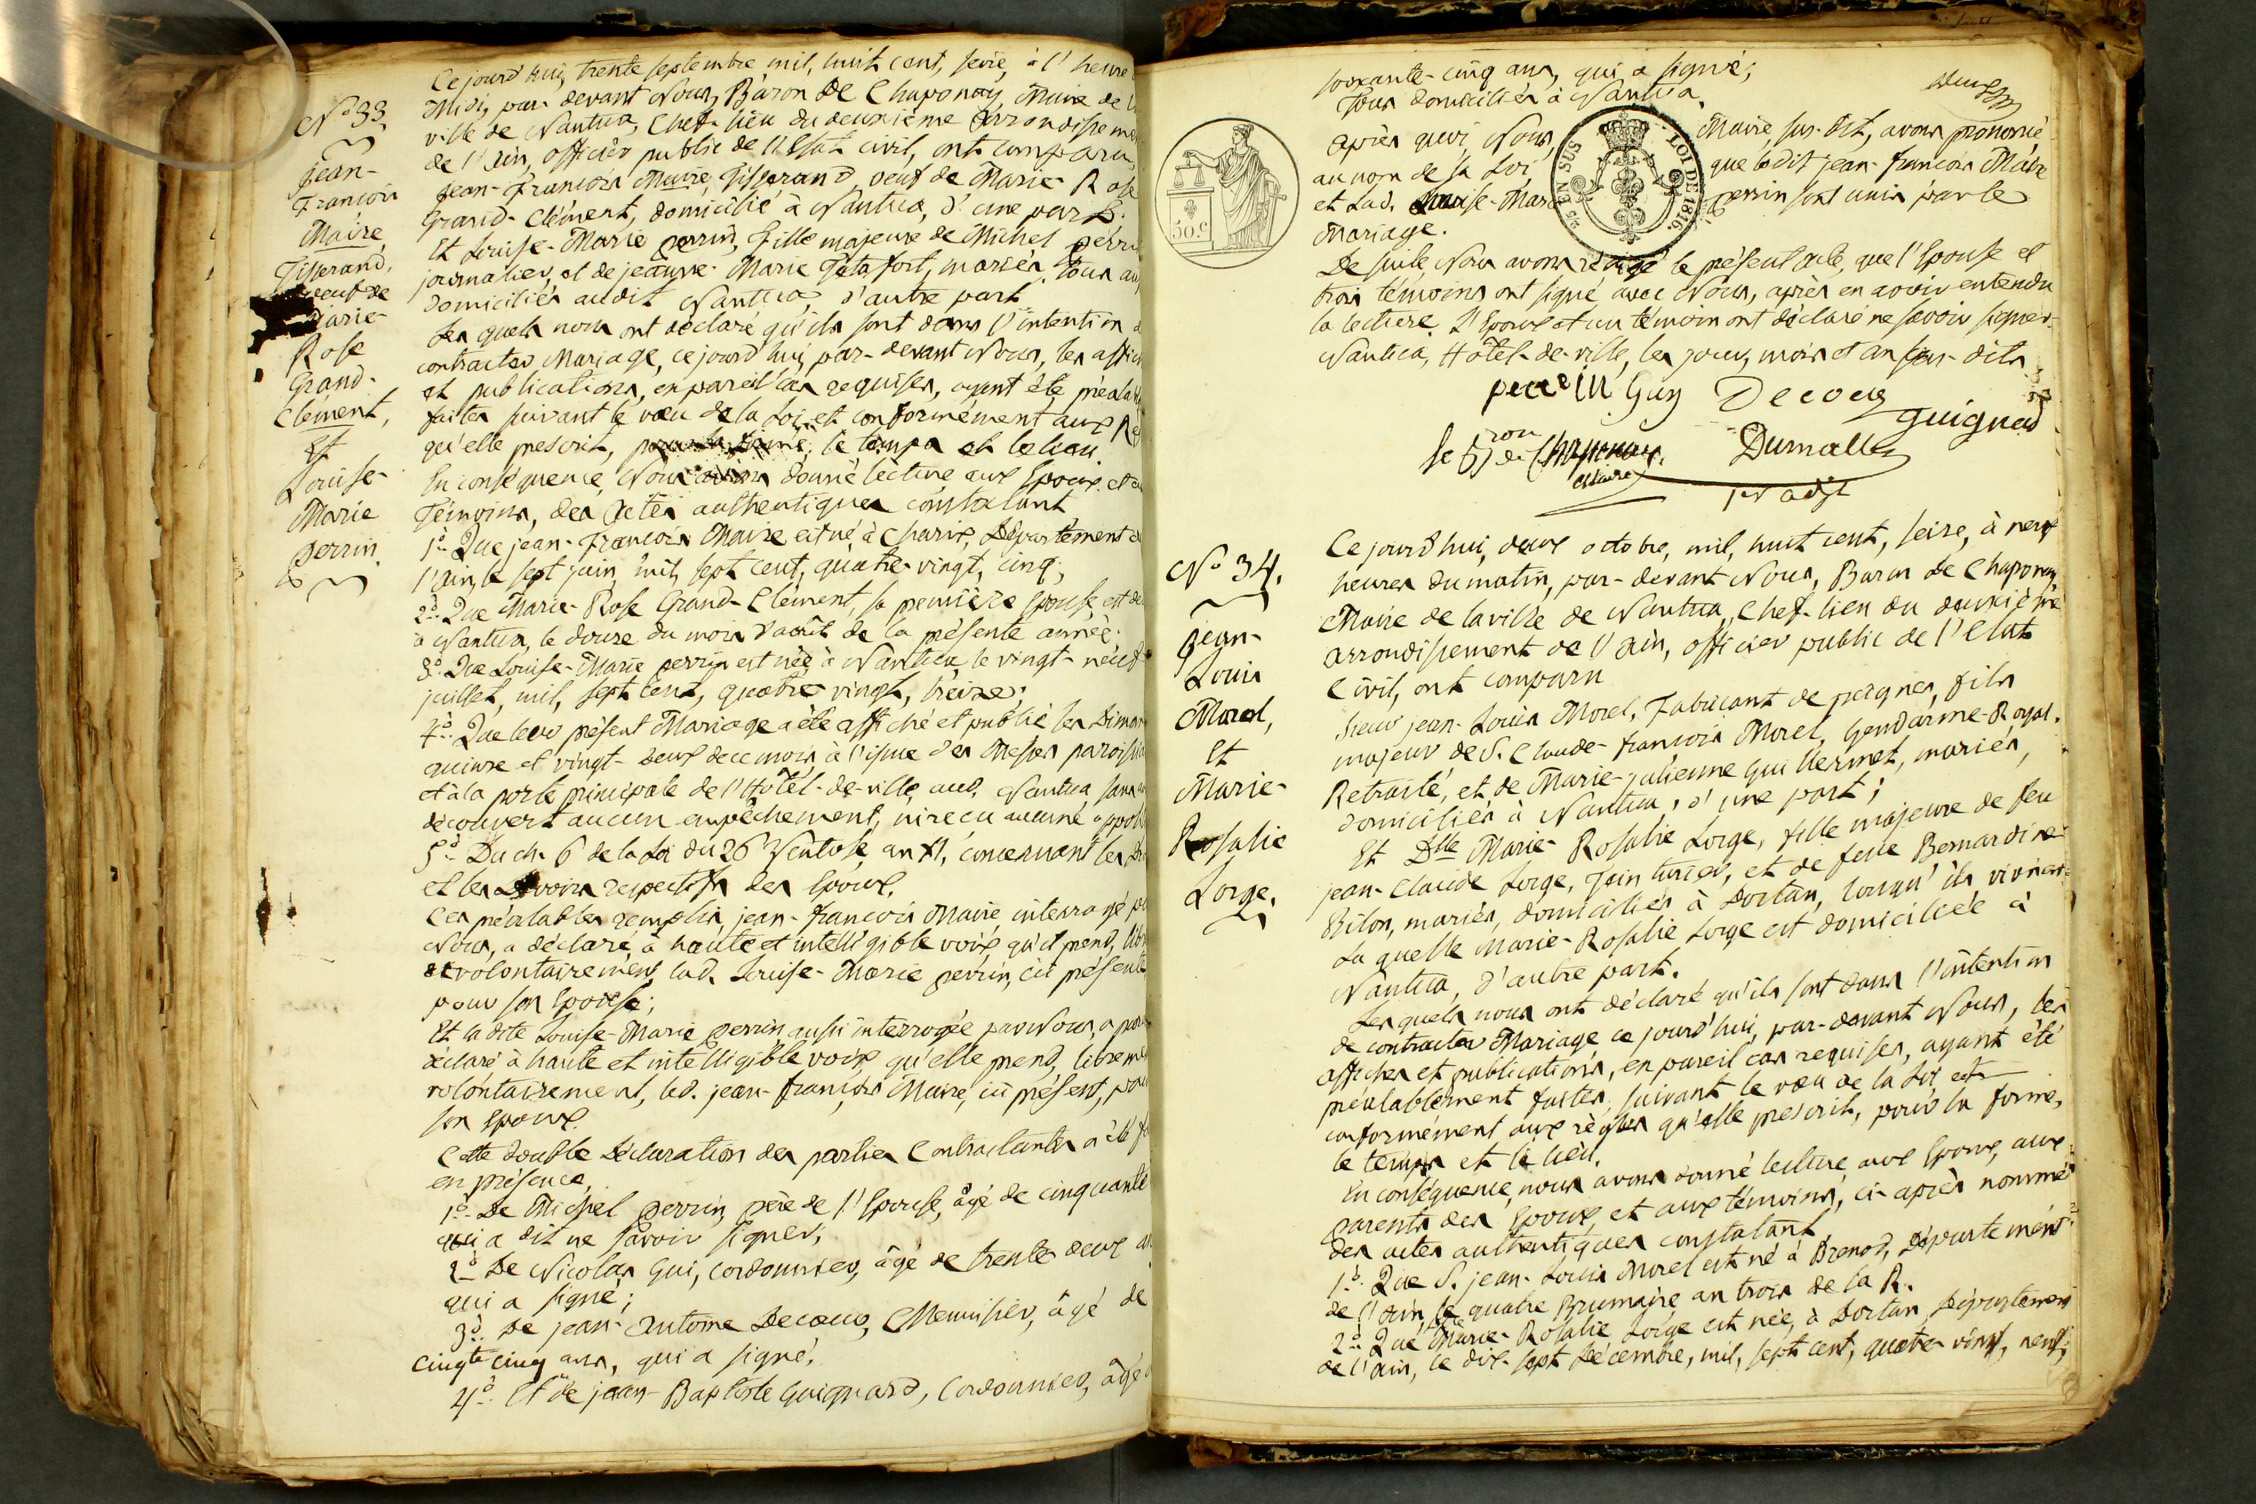 N.º 33.
Jean-
François
Maire
Tisserand,
veuf de
Marie-
Rose
Grand-
Clément,
Et
Louise-
Marie
perrin.
Ce jourd'hui, trente septembre mil, huit cent, seize, à l'heure
Midi, par-devant Nous, Baron De Chaponay, Maire de
ville de Nantua, Chef-lieu du deuxième arrondissemen
de l'ain, officier public de l'Etat civil, ont comparu,
jean-françois Maire, Tisserand, veuf de Marie-Rose
Grand-Clément, domicilié à Nantua, d'une part.
Et Louise-Marie perrin, fille majeure de Michel perrin
journalier, et de jeanne-Marie Tetafort, mariés, tous
domiciliés audit Nantua, d'autre part
Lesquels nous ont déclaré qu'ils sont dans l'intention
contracter Mariage, ce jourd'hui, par-devant Nous, les affich
et publications, en pareil cas requises, ayant été préalab
faites suivant le vœu de la Loi et conformément aux Re
qu'elle prescrit, pour la forme, le temps et le lieu.
En conséquence, Nous avons donné lecture aux Epoux et
Témoins, des actes authentiques constatant
1.º Que jean-François Maire est né à Charix, Département
l'ain, le sept juin, mil, sept cent, quatre-vingt, cinq;
2.º Que Marie-Rose Grand-Clément, sa première Epouse, est
à Nantua, le douze du mois d'août de la présente année;
3.º Que Louise-Marie perrin est née à Nantua, le vingt-neuf
juillet, mil, sept cent, quatre-vingt, treize;
4.º Que leur présent Mariage a été affiché et publié les Diman
quinze et vingt-deux de ce mois, à l'issue des Messes paroissia
et à la porte principale de l'Hôtel-de-ville, aud. Nantua, sans
découvert aucun empêchement, ni reçu aucune oppos
5.º Du ch. 6 de la Loi du 26 Ventôse, an XI, concernant les
et les Devoirs respectifs des Epoux.
Ces préalables remplis, jean-françois Maire, interrogé
Nous, a déclaré, à haute et intelligible voix, qu'il prend, lib
et volontairement, lad. Louise-Marie perrin, ici présente
pour son Epouse;
Et ladite Louise-Marie perrin, aussi interrogée par Nous, a
déclaré à haute et intelligible voix, qu'elle prend, libreme
volontairement, led. jean-françois Maire, ici présent, pour
son Epoux.
Cette double Déclaration des parties Contractantes a été
en présence,
1.º De Michel perrin, père de l'Epouse, âgé de cinquante
qui a dit ne savoir signer;
2.º De Nicolas Gui, cordonnier, âgé de trente-deux
qui a signé;
3.º De jean-antoine Decoeur, Menuisier, âgé de
cinqte cinq ans, qui a signé,
4.º Et de jean-Baptiste Guignard, Cordonnier, âgé
soixante-cinq ans, qui a signé;
Tous domiciliés à Nantua.
après quoi, Nous, Maire, sus-dit, avons prononcé
au nom de la Loi, que ledit jean-françois Maire
et Lad. Louise-Marie perrin sont unis par le
Mariage.
50.c
EN SUS
LOI DE 1816.
De suite, Nous avons rédigé le présent acte, que l'Epouse et
trois témoins ont signé avec Nous, après en avoir entendu
la lecture. L'Epoux et un témoin ont déclaré ne savoir signer.
Nantua, Hôtel-de-ville, les jour, mois et an sus-dits
perrin Guy Decoeur
Guignard
le Bron de Chaponay, Dumalle
Maire
1er adjt
N.º 34.
Jean-
Louis
Morel,
Et
Marie-
Rosalie
Lorge.
Ce jourd'hui, deux octobre, mil, huit cent, seize, à neuf
heures du matin, par-devant Nous, Baron de Chaponay
Maire de la ville de Nantua, Chef-lieu du deuxième
arrondissement de l'ain, officier public de l'Etat
Civil, ont comparu
Sieur jean-Louis Morel, Fabricant de peignes, fils
majeur de S. Claude-françois Morel, Gendarme-Royal,
Retraité, et de Marie-julienne Guillermet, mariés,
domiciliés à Nantua, d'une part;
Et Dlle Marie-Rosalie Lorge, fille majeure de feu
jean-Claude Lorge, Teinturier, et de feue Bernardine
Bilon, mariés, domiciliés à Dortan, lorsqu'ils vivaient
La quelle Marie-Rosalie Lorge est domiciliée à
Nantua, d'autre part.
Lesquels nous ont déclaré qu'ils sont dans l'intention
de contracter Mariage ce jourd'hui, par-devant Nous, les
affiches et publications, en pareil cas requises, ayant été
préalablement faites, suivant le vœu de la Loi, et
conformément aux règles qu'elle prescrit, pour la forme,
le temps et le lieu.
En conséquence, nous avons donné lecture aux Epoux, aux
parents des Epoux, et aux témoins, ci-après nommés
des actes authentiques constatant
1.º Que S. jean-Louis Morel est né à Brenod, Département
de l'ain, le quatre Brumaire, an trois de la R.
2.º Que Marie-Rosalie Lorge est née, à Dortan, Département
de l'ain, le dix-sept Décembre, mil, sept cent, quatre-vingt, neuf;